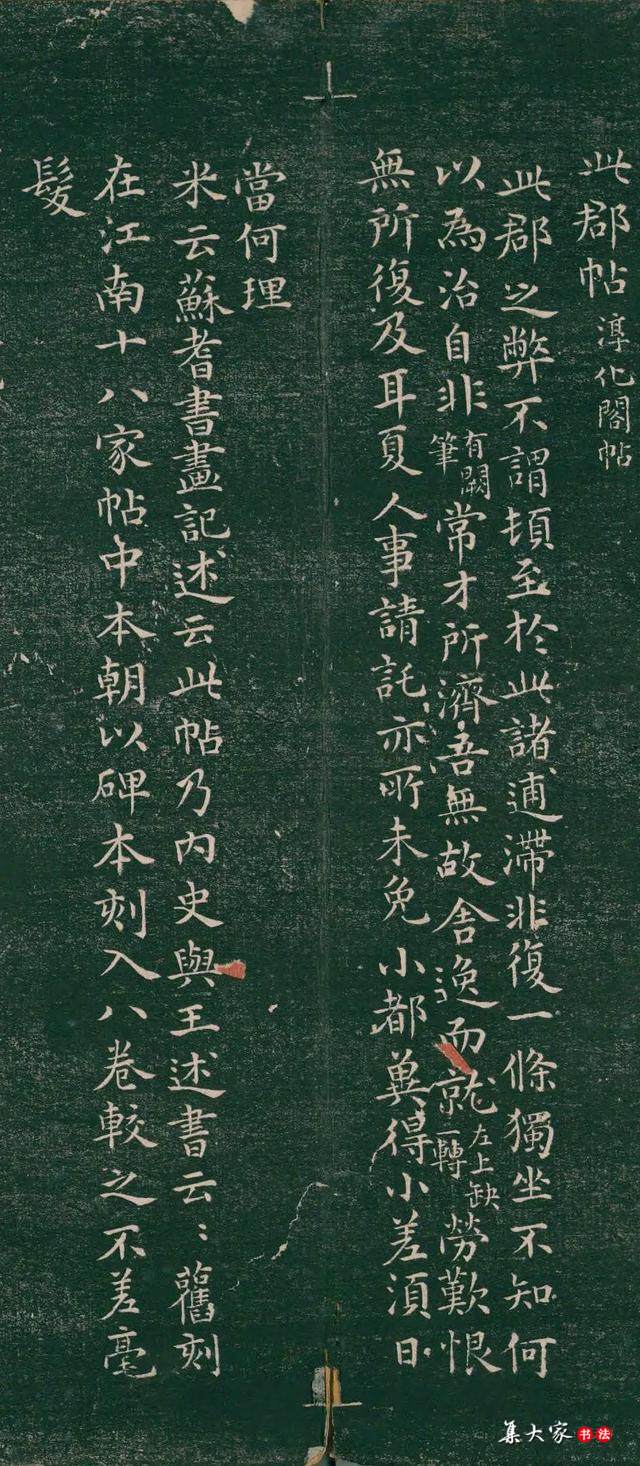 此郡帖 淳化閣帖
此郡之弊不謂頓至於此諸逋滯非復一條獨坐不知何
以為治自非有闕筆常才所濟吾無故舍逸而就左上缺一轉勞歎恨
無所復及耳夏人事請託亦所未免小都冀得小差須日
當何理
米云蘇耆書畫記述云此帖乃內史與王述書云〻舊刻
在江南十八家帖中本朝以碑本刻入八卷較之不差毫
髮
集大家书法